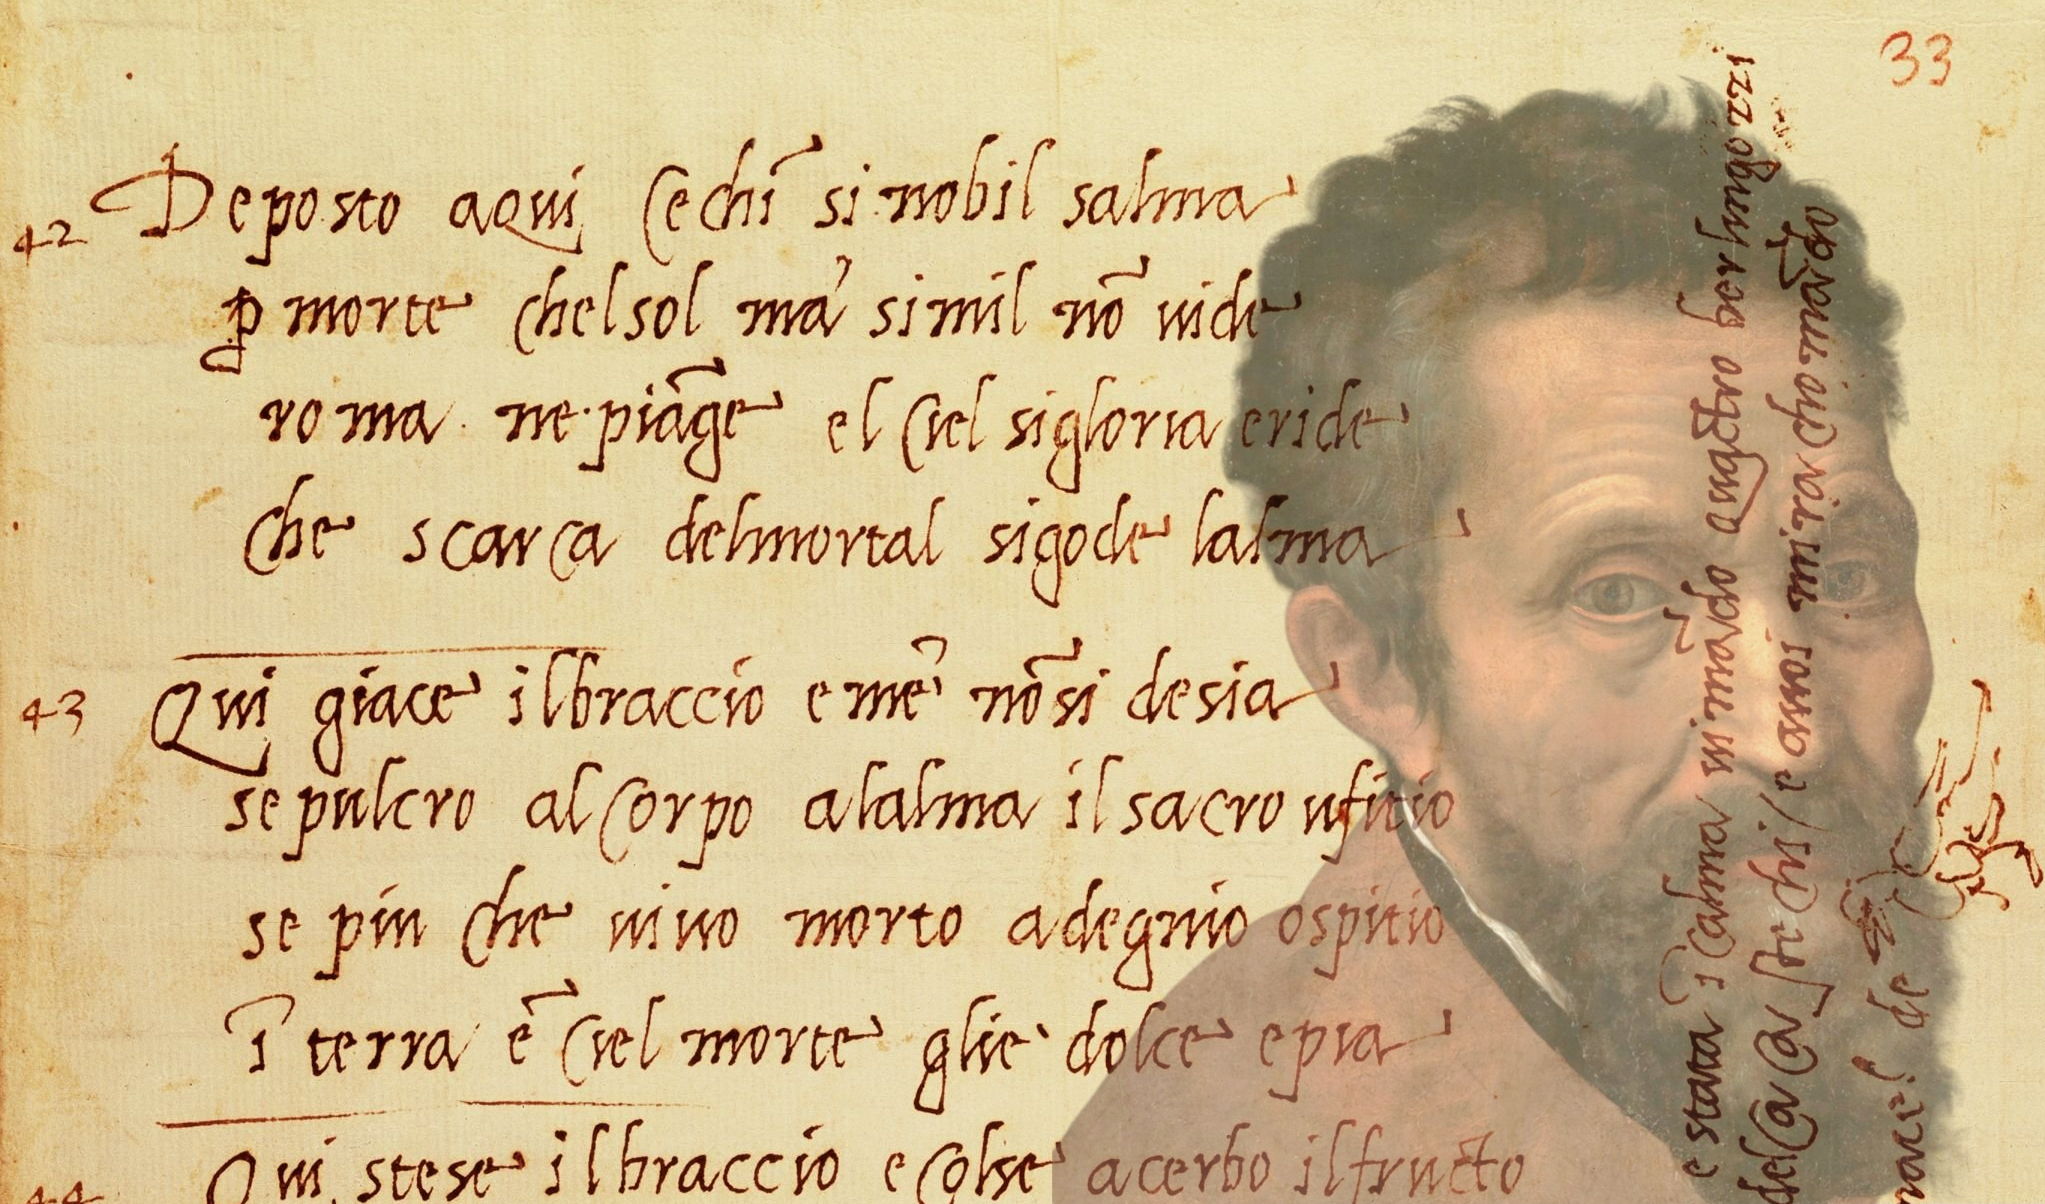 33
42 Deposto aqui Cechī si nobil salma
p̱ morte chel sol ma' simil nō uide
roma ne·piāge el ciel si gloria e ride
che scarca del mortal si gode lalma
43 Qui giace il braccio e me' nō si desia
sepulcro al corpo alalma il sacro ufitio
se piu che uiuo morto a degnio ospitio
ī terra ē ciel morte glie dolce e pia
44 Qui stese il braccio e colse acerbo il fructo
e stata ī calma ui mādo quactro berlingozzi
de e amor mira chio mādo
de